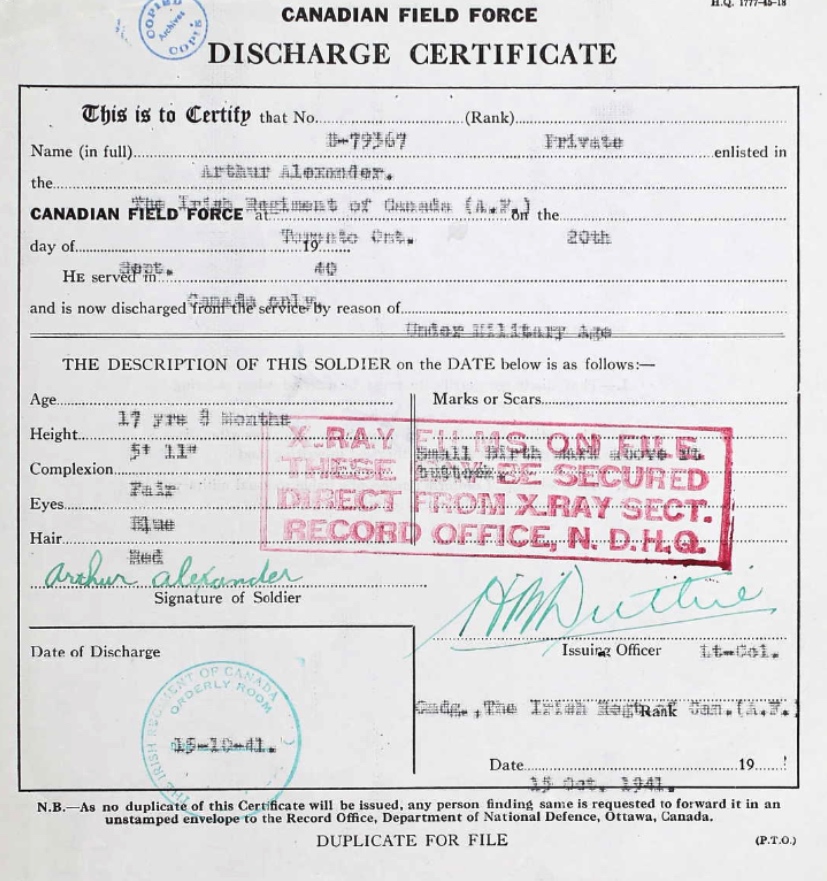 H.Q. 1777-45-18
COPIED
Archives
COPIE
CANADIAN FIELD FORCE
DISCHARGE CERTIFICATE
This is to Certify that No. (Rank)
B-79367 Private
Name (in full) enlisted in
Arthur Alexander.
the
The Irish Regiment of Canada (A.F.)
CANADIAN FIELD FORCE at on the
Toronto Ont. 20th
day of 19
Sept. 40
HE served in
Canada only.
and is now discharged from the service by reason of
Under Military Age
THE DESCRIPTION OF THIS SOLDIER on the DATE below is as follows:—
Age Marks or Scars
17 yrs 8 Months
Height
5' 11" Small Birth mark above Rt
buttock.
Complexion
Fair
Eyes
Blue
Hair
Red
X-RAY FILMS ON FILE
THESE MAY BE SECURED
DIRECT FROM X.RAY SECT.
RECORD OFFICE, N. D.H.Q.
Arthur Alexander
Signature of Soldier
Issuing Officer Lt-Col.
Date of Discharge
THE IRISH REGIMENT OF CANADA
ORDERLY ROOM
15-10-41.
Cmdg.,The Irish Regt of Can.(A.F.)
Rank
Date 19
15 Oct. 1941.
N.B.—As no duplicate of this Certificate will be issued, any person finding same is requested to forward it in an
unstamped envelope to the Record Office, Department of National Defence, Ottawa, Canada.
DUPLICATE FOR FILE
(P.T.O.)